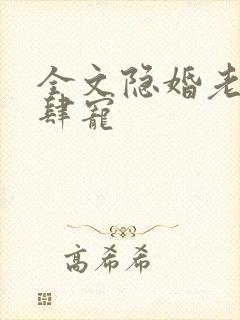 全文隐婚老
肆宠
高希希